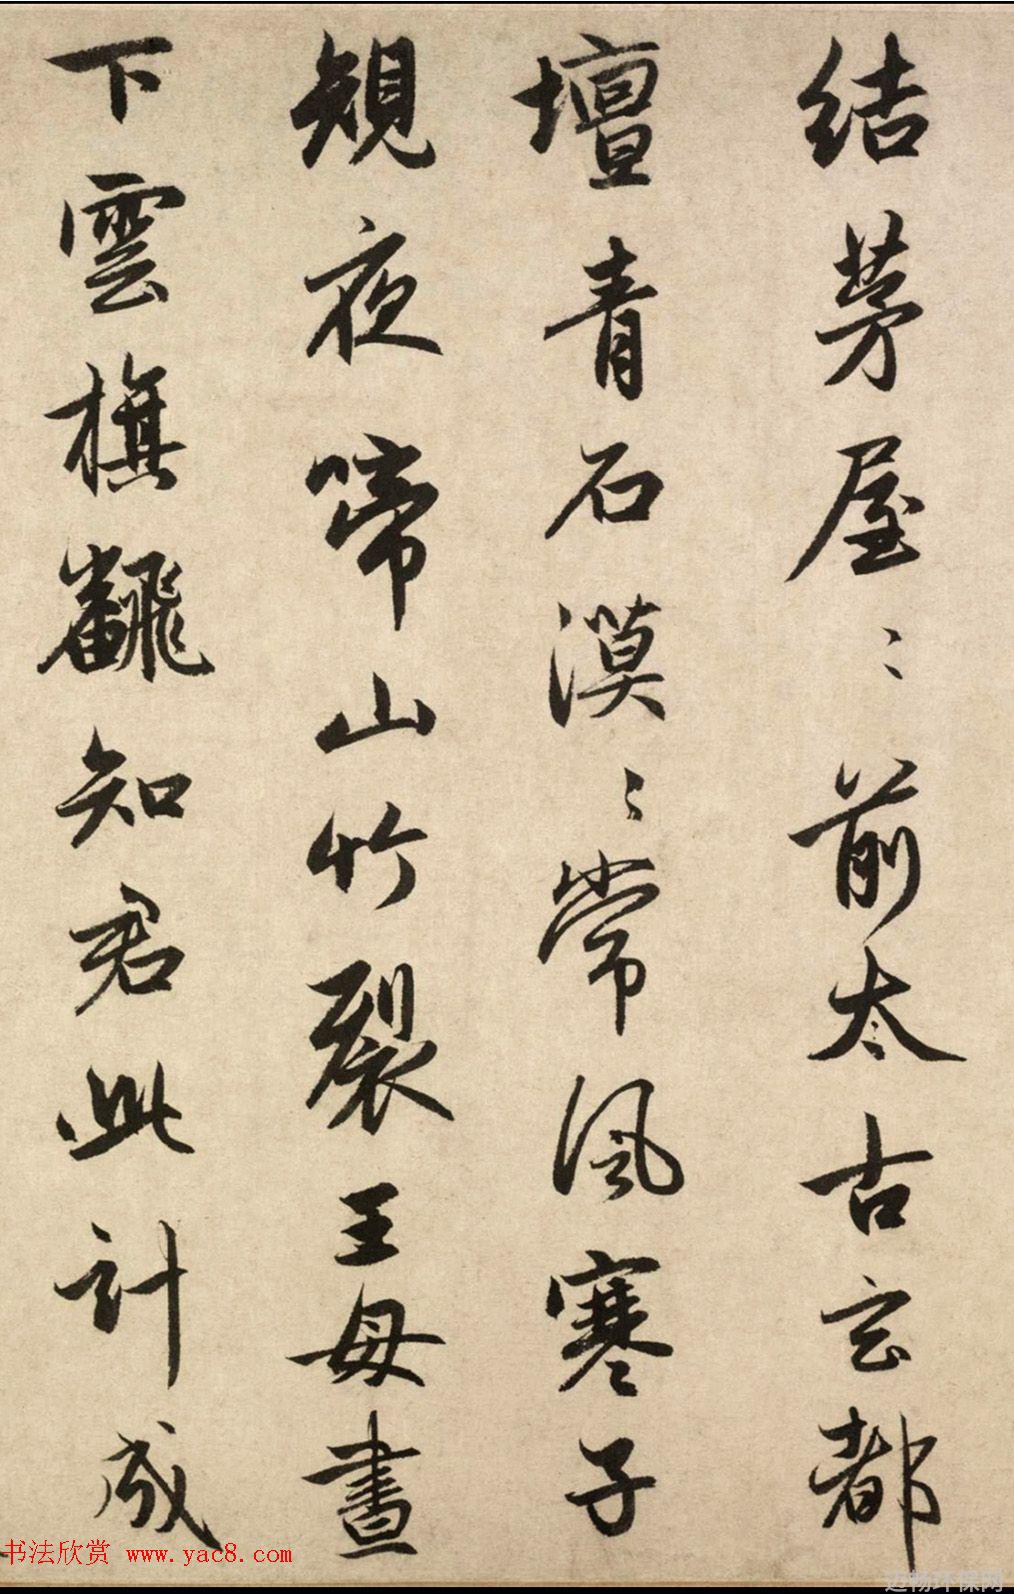 結茅屋〻前太古玄都
壇青石漠〻常風寒子
䂓夜啼山竹裂王母晝
下雲旗飜知君此計成
书法欣赏 www.yac8.com